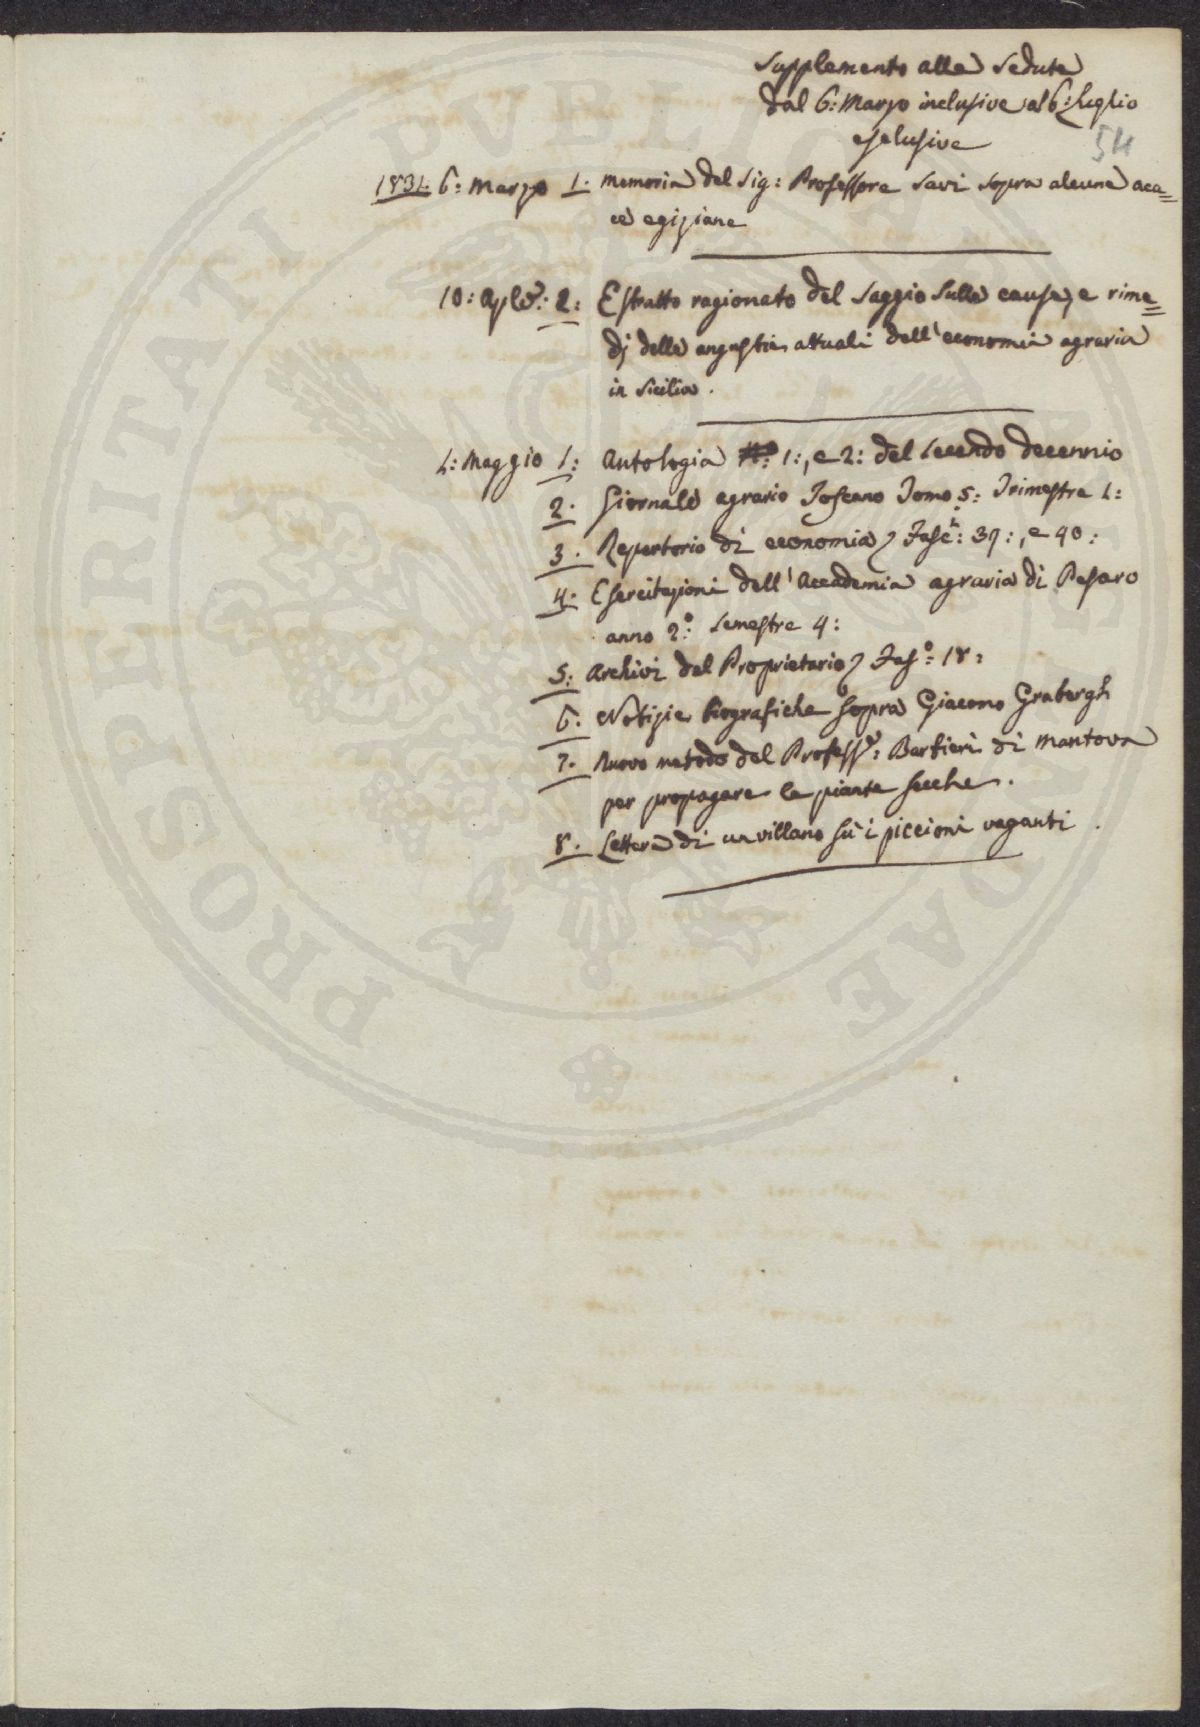 Supplemento alle Sedute
dal 6: Marzo inclusive al 6: Luglio
esclusive
54
1831. 6: Marzo 1. Memoria del Sig: Professore Savi sopra alcune aca=
cie egiziane
10: Aple: 2: Estratto ragionato del Saggio sulle cause, e rime=
dj delle angustie attuali dell'economia agraria
in Sicilia.
1: Maggio 1: Antologia 1:, e 2: del secondo decennio
2. Giornale agrario Toscano Tomo 5: Trimestre 1:
3. Repertorio di economia Fasc: 39:, e 40:
4. Esercitazioni dell'Accademia agraria di Pesaro
anno 2º: Semestre 4:
5: Archivi del Proprietario Fasº: 18:
6. Notizie biografiche sopra Giacomo Grabergh
7. Nuovo metodo del Professe: Barbieri di Mantova
per propagare le piante secche.
8. Lettera di un villano sù i piccioni vaganti
PROSPERITATI PUBLICAE